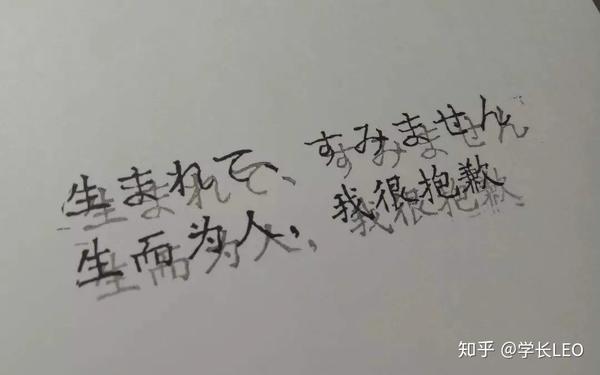 生まれて、すみません
生而为人，我很抱歉
知乎 @学长LEO